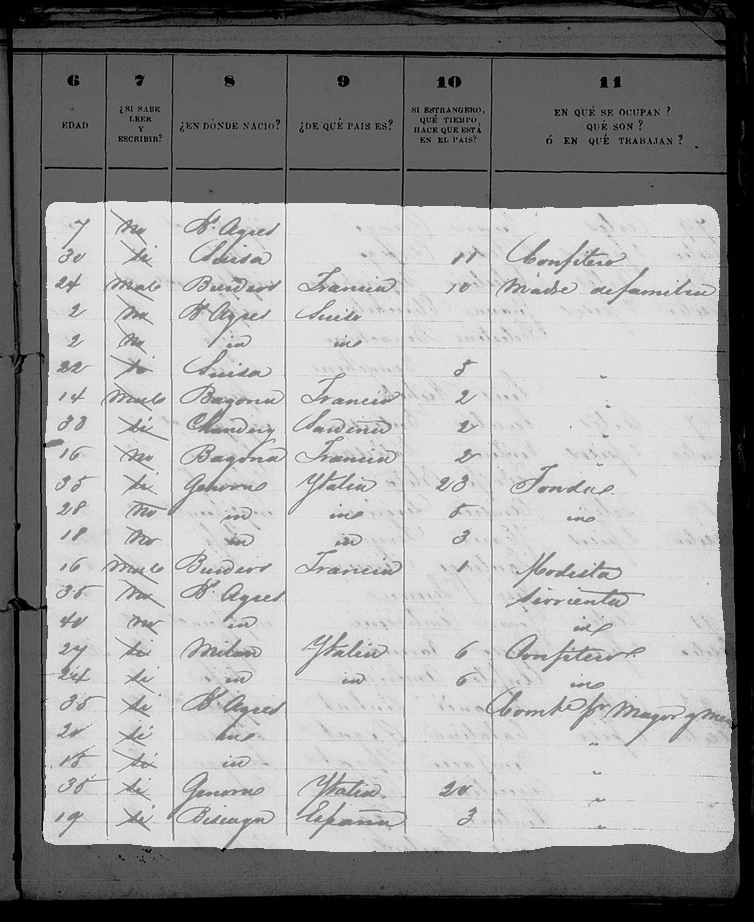 6 7 8 9 10 11
EDAD ¿SI SABE LEER Y ESCRIBIR? ¿EN DÓNDE NACIO? ¿DE QUÉ PAIS ES? SI ESTRANGERO, QUÉ TIEMPO HACE QUE ESTÁ EN EL PAIS? EN QUÉ SE OCUPAN? QUÉ SON? Ó EN QUÉ TRABAJAN?
7 No Bs Ayres
30 si Suisa 11 Confitero
24 Malo Burdeos Francia 10 Madre de familia
2 No Bs Ayres Suiso
2 No in in
22 si Suisa 5 "
14 Malo Bayona Francia 2 "
33 si Sardeña 2 "
16 No Bayona Francia 2 "
35 si Genova Ytalia 23 Fonda
28 No in in 5 in
18 No in in 3
16 Malo Burdeos Francia 1 Modista
35 No Bs Ayres sirvienta
40 No in in
27 si Milan Ytalia 6 Confitero
24 si in in 6 in
35 si Bs Ayres Comte pr Mayor y men
20 si in "
15 si in "
35 si Genova Ytalia 20 "
19 si Biscaya España 3 "